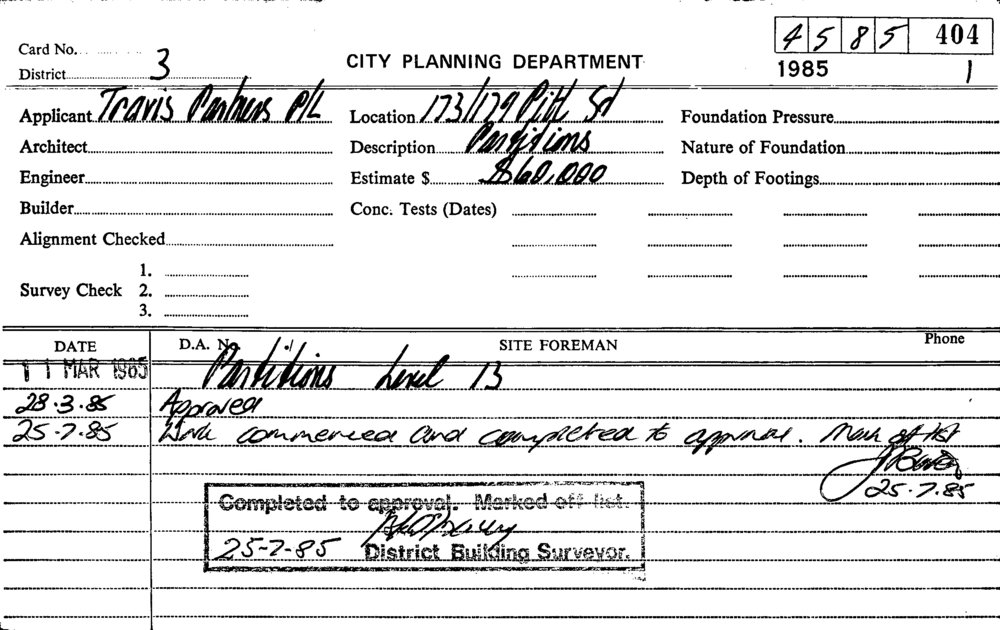 4585 404
Card No.
District 3
CITY PLANNING DEPARTMENT
1985 1
Applicant Travis Partners P/L Location 173/179 Pitt St Foundation Pressure
Architect Description Partitions Nature of Foundation
Engineer Estimate $ $60,000 Depth of Footings
Builder Conc. Tests (Dates)
Alignment Checked
1.
Survey Check 2.
3.
DATE D.A. No. SITE FOREMAN Phone
11 MAR 1985 Partitions Level 13
28.3.85 Approved
25.7.85 Work commenced and completed to approval. Mark off list
25.7.85
Completed to approval. Marked off list.
25-7-85 District Building Surveyor.